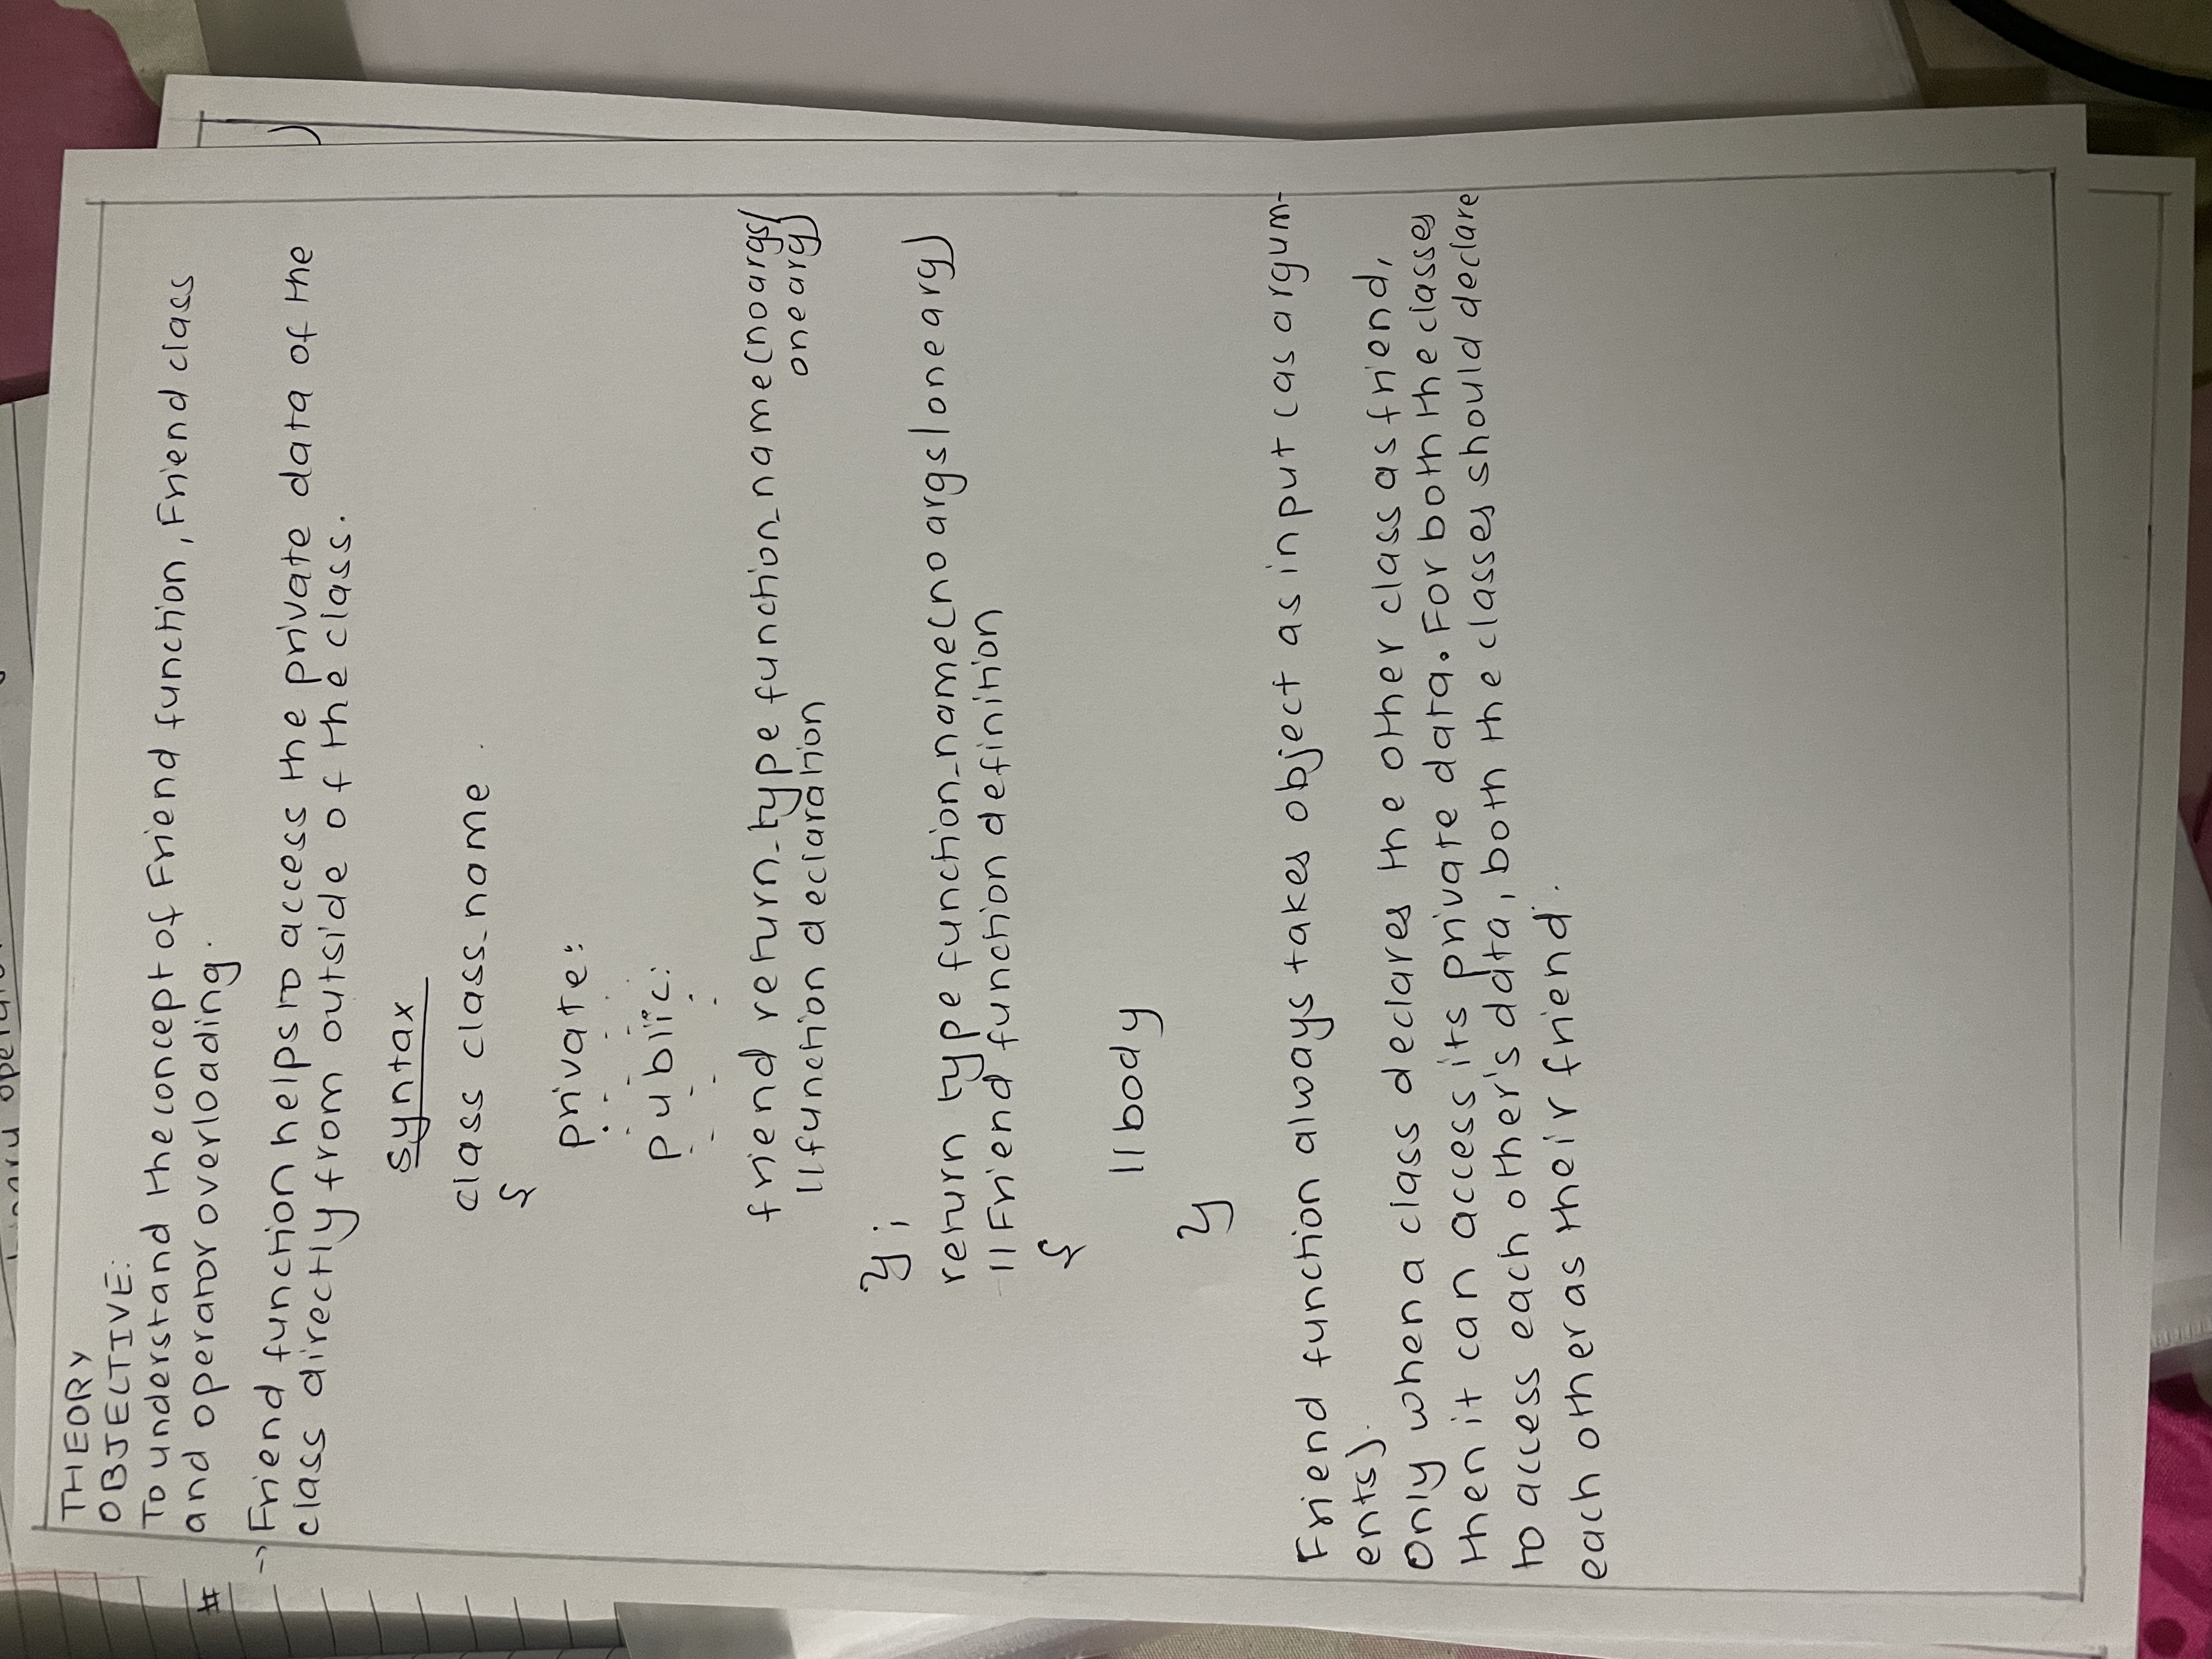 binary
THEORY
OBJECTIVE:
To understand the concept of Friend function, Friend class
and operator overloading.
#
-> Friend function helps to access the private data of the
class directly from outside of the class.
syntax
class class_name
{
private:
public:
friend return_type function_name(no args/
one arg)
//function declaration
};
return type function_name(no args/one arg)
//Friend function definition
{
//body
}
Friend function always takes object as input (as argum-
ents).
Only when a class declares the other class as friend,
then it can access its private data. For both the classes
to access each other's data, both the classes should declare
each other as their friend.